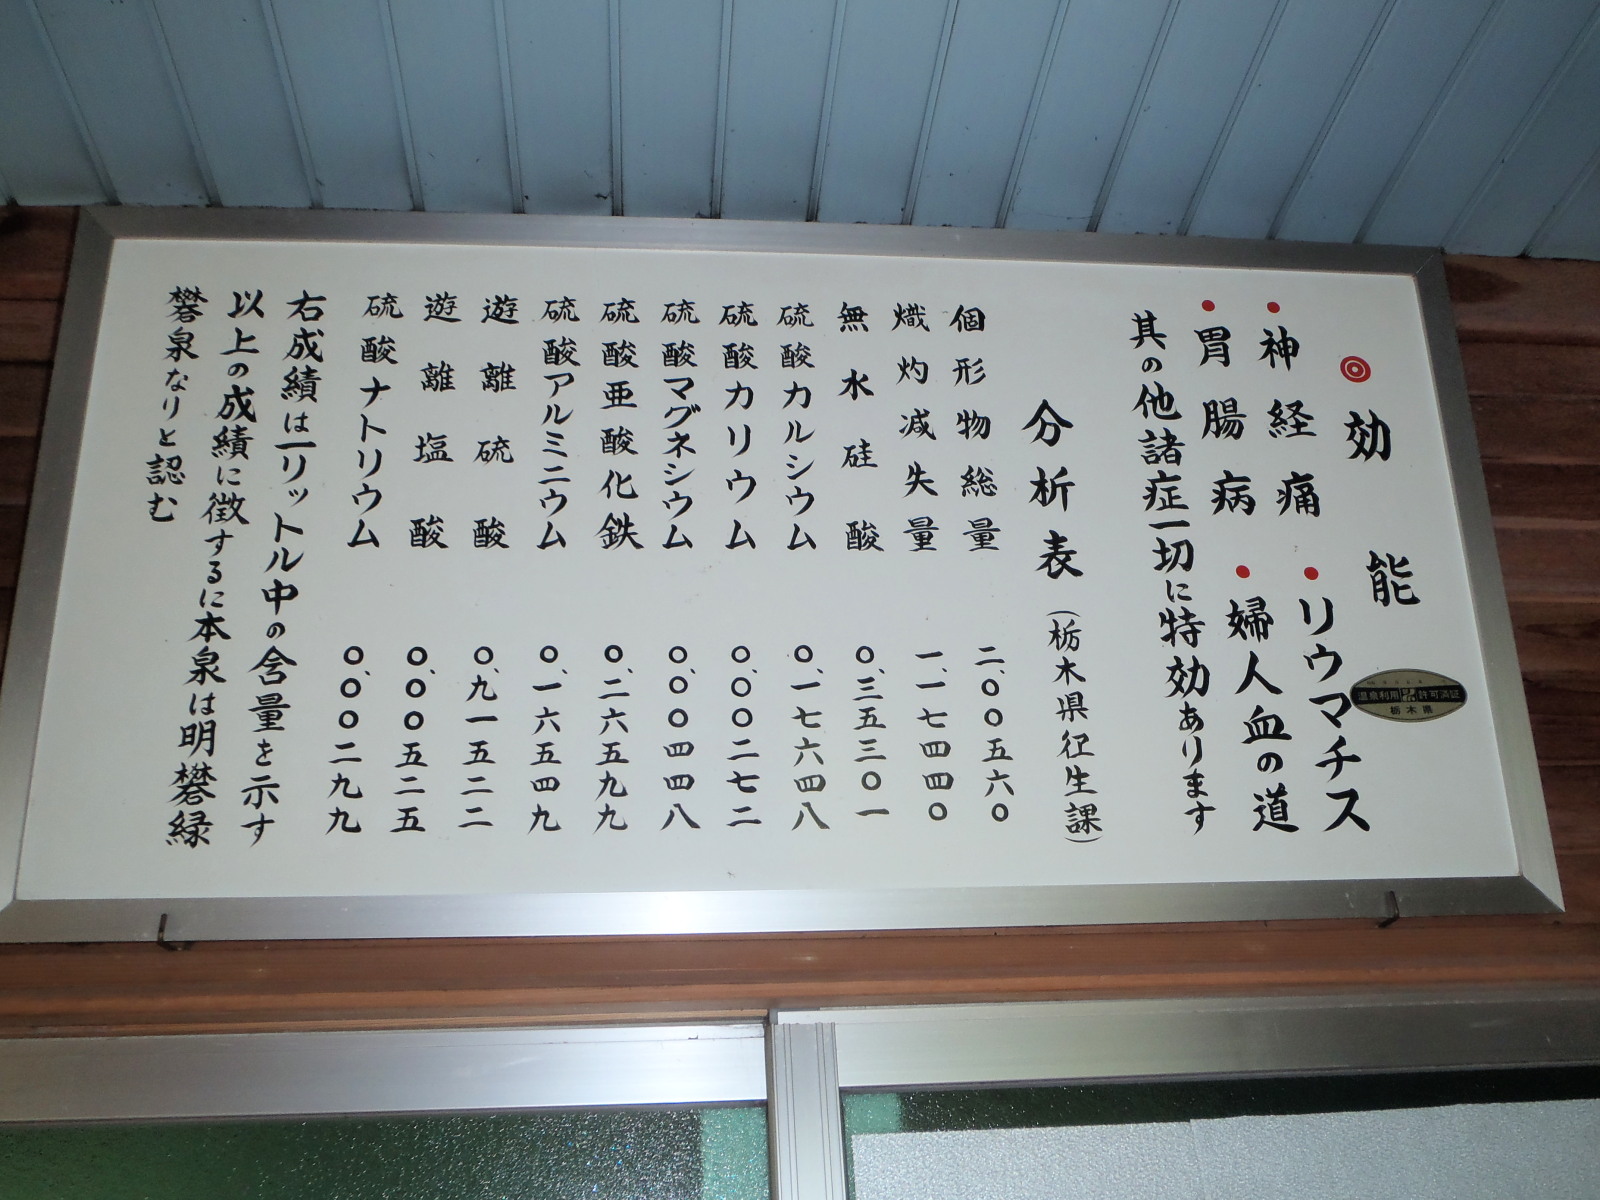 ◎効能
・神経痛 ・リウマチス
・胃腸病 ・婦人血の道
其の他諸症一切に特効あります
分析表（栃木県衛生課）
個形物総量 二、〇〇五六〇
熾灼減失量 一、一七四四〇
無水硅酸 〇、三五三〇一
硫酸カルシウム 〇、一七六四八
硫酸カリウム 〇、〇〇二七二
硫酸マグネシウム 〇、〇〇四四八
硫酸亜酸化鉄 〇、二六五九九
硫酸アルミニウム 〇、一六五四九
遊離硫酸 〇、九一五二二
遊離塩酸 〇、〇〇五二五
硫酸ナトリウム 〇、〇〇二九九
右成績は一リットル中の含量を示す
以上の成績に徴するに本泉は明礬緑
礬泉なりと認む
温泉利用許可済証
栃木県